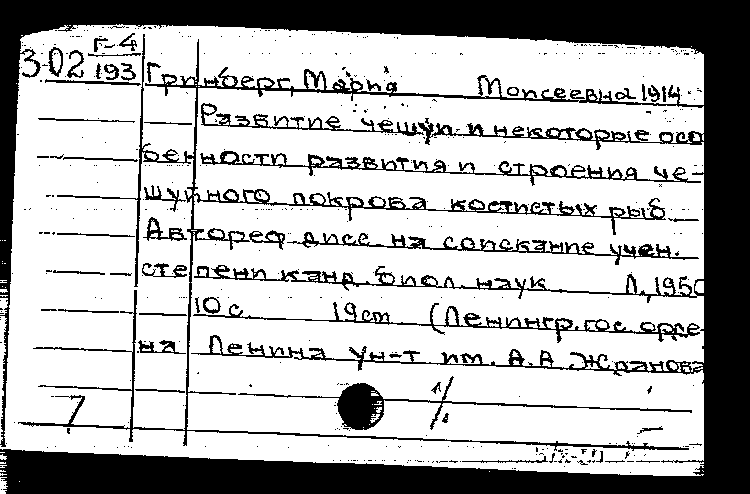 302 Г-4
193
Гринберг, Мария Моисеевна 1914
Развитие чешуи и некоторые осо
бенности развития и строения че-
шуйного покрова костистых рыб
Автореф дисс на соискание учен.
степени канд. биол. наук Л., 1950
10 с 19 cm (Ленингр. гос орде
на Ленина ун-т им. А. А Жданова
7 1/1